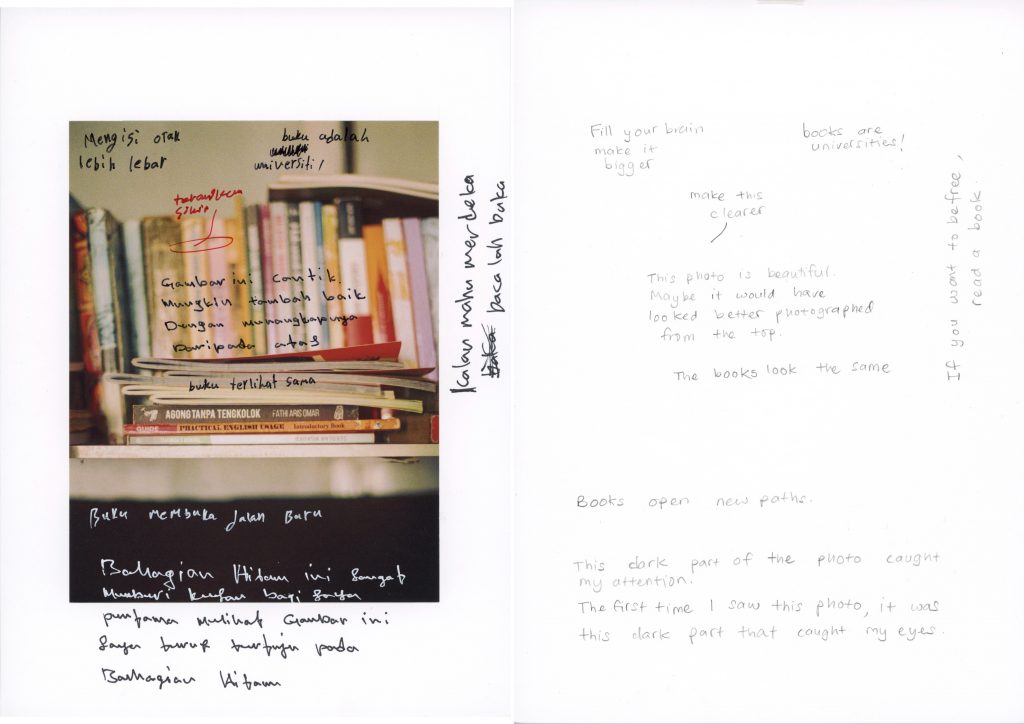 Mengisi otak
lebih lebar
buku adalah
universiti!
Gambar ini cantik.
Mungkin tambah baik
Dengan menangkapnya
Daripada atas
buku terlihat sama
AGONG TANPA TENGKOLOK FATHI ARIS OMAR
GUIDE PRACTICAL ENGLISH USAGE Introductory Book
Buku membuka jalan Baru
Bahagian Hitam ini sangat
bagi saya
pertama melihat Gambar ini
saya terus tertuju pada
Bahagian Hitam
Kalau mahu merdeka
baca lah buku
Fill your brain
make it
bigger
books are
universities!
make this
clearer
This photo is beautiful.
Maybe it would have
looked better photographed
from the top.
The books look the same
If you want to be free,
read a book.
Books open new paths.
This dark part of the photo caught
my attention.
The first time I saw this photo, it was
this dark part that caught my eyes.